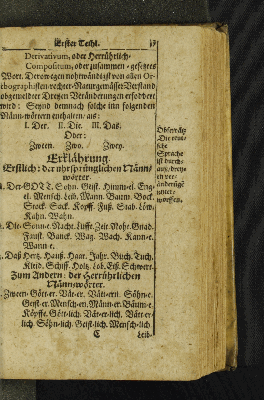 Erster Theil. 37
Derivativum, oder Herrührlich-
Compositum, oder zusammen-gesetztes
Wort. Derowegen nohtwändigst von allen Or-
thographisten rechter Naturgemässer Verstand
obgemeldter Dreyen Veränderungen erfodert
wird: Seynd demnach solche inn folgenden
Männ-wörtern enthalten/ als:
I. Der. II. Die. III. Das.
Oder:
Zween. Zwo. Zwey.
Observatz
Die teut-
sche
Sprache
ist durch-
Erklährung.
Erstlich: der uhrsprünglichen Männ-
wörter.
Der GOTT. Sohn. Geist. Himm-el. Eng-
el. Mensch. Leib. Mann. Baum. Bock.
Stock. Sack. Kopff. Fuß. Stab. Löw.
Kahn. Wahn.
Die Sonn-e. Nacht. Lufft. Zeit. Noht. Gnad.
Faust. Banck. Wag. Wach. Kann-e.
Wann-e.
Das Hertz. Hauß. Haar. Jahr. Buch. Tuch.
Kleid. Schiff. Holtz. Lob. Eiß. Schwert.
Zum Andern: der Herrührlichen
Männwörter.
Zween-Gött-er. Vät-er. Vätt-ern. Söhn-e.
Geist-er. Mensch-en. Männ-er. Bäum-e.
Köpffe. Gött-lich. Vät-er-lich. Vätt-er-
lich. Söhn-lich. Geist-lich. Mensch-lich.
C Leib-